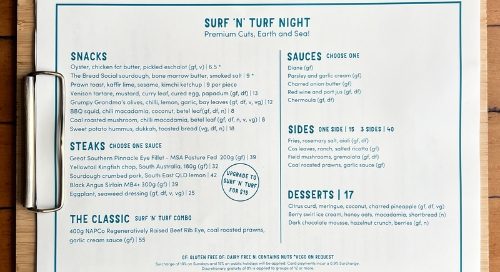 SURF 'N' TURF NIGHT
Premium Cuts, Earth and Sea!
SNACKS
Oyster, chicken fat butter, pickled eschalot (gf, v) | 5.5 *
The Bread Social sourdough, bone marrow butter, smoked salt | 9 *
Prawn toast, kaffir lime, sesame, kimchi ketchup | 9 per piece
Venison tartare, mustard, curry leaf, cured egg, papadum (gf, df) | 13
Grumpy Grandma's olives, chilli, lemon, garlic, bay leaves (gf, df, v, vg) | 12
BBQ squid, chilli macadamia, coconut, betel leaf (gf, df, n) | 8
Coal roasted mushroom, chilli macadamia, betel leaf (gf, df, n, v, vg) | 8
Sweet potato hummus, dukkah, toasted bread (vg, df, n) | 18
STEAKS CHOOSE ONE SAUCE
Great Southern Pinnacle Eye Fillet - MSA Pasture Fed 200g (gf) | 39
Yellowtail Kingfish chop, South Australia, 180g (gf) | 32
Sourdough crumbed pork, South East QLD lemon | 42
Black Angus Sirloin MB4+ 300g (gf) | 39
Eggplant, seaweed dressing (gf, df, v, vg) | 25
UPGRADE TO
SURF N' TURF
FOR $15
THE CLASSIC SURF 'N' TURF COMBO
400g NAPCo Regeneratively Raised Beef Rib Eye, coal roasted prawns,
garlic cream sauce (gf) | 55
SAUCES CHOOSE ONE
Diane (gf)
Parsley and garlic cream (gf)
Charred onion butter (gf)
Red wine and port jus (gf, df)
Chermoula (gf, df)
SIDES ONE SIDE | 15 3 SIDES | 40
Fries, rosemary salt, aioli (gf, df)
Cos leaves, ranch, salted ricotta (gf)
Field mushrooms, gremolata (gf, df)
Coal roasted prawns, garlic sauce (gf)
DESSERTS | 17
Citrus curd, meringue, coconut, charred pineapple (gf, df, v)
Berry swirl ice cream, honey oats, macadamia, shortbread (n)
Dark chocolate mousse, hazelnut crunch, berries (gf, n)
GF: GLUTEN FREE DF: DAIRY FREE N: CONTAINS NUTS *VEGO ON REQUEST
Surcharge of 10% on Sundays and 15% on public holidays will be applied. Card payments incur a 0.9% Surcharge.
Discretionary gratuity of 8% is applied to groups of 12 or more.